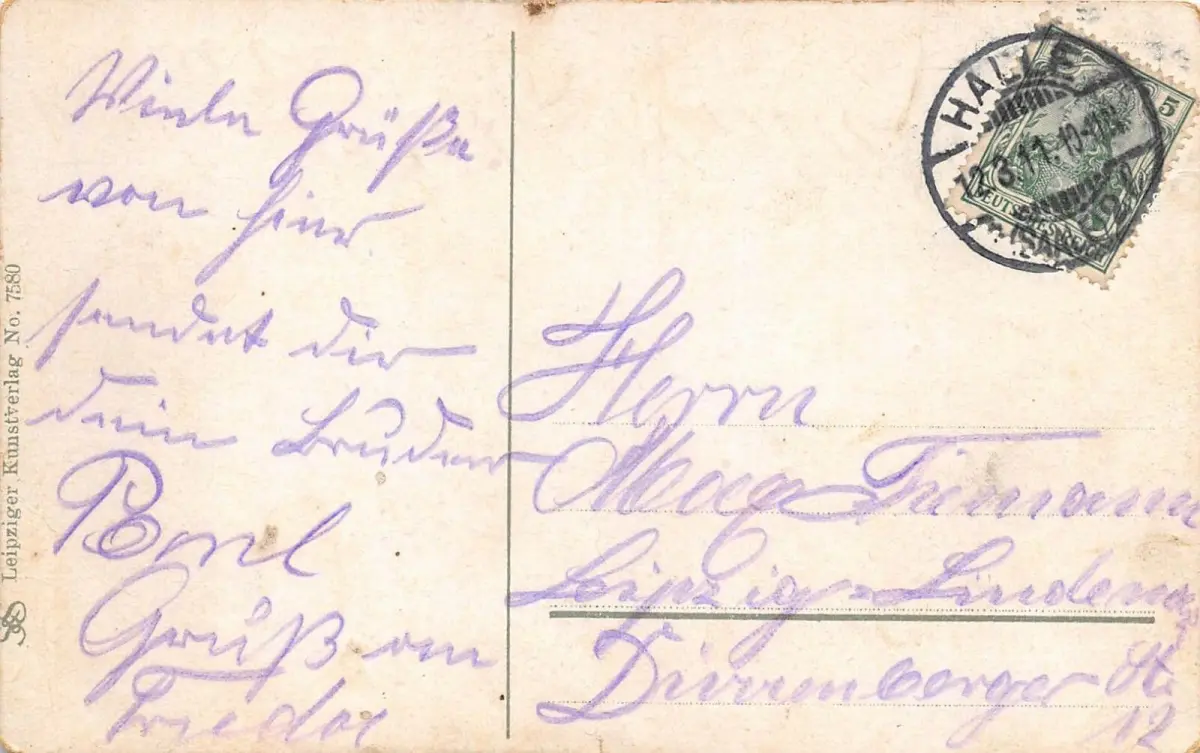 Viele Grüße
von hier
sendet dir
dein Bruder
Gruß an
Frieda
Leipziger Kunstverlag No. 7580
HALLE
12.3.11. 10-11
(SAALE)
5
DEUTSCHES REICH
Herrn
Max
Leipzig-Lindenau
Dürrenberger Str.
12